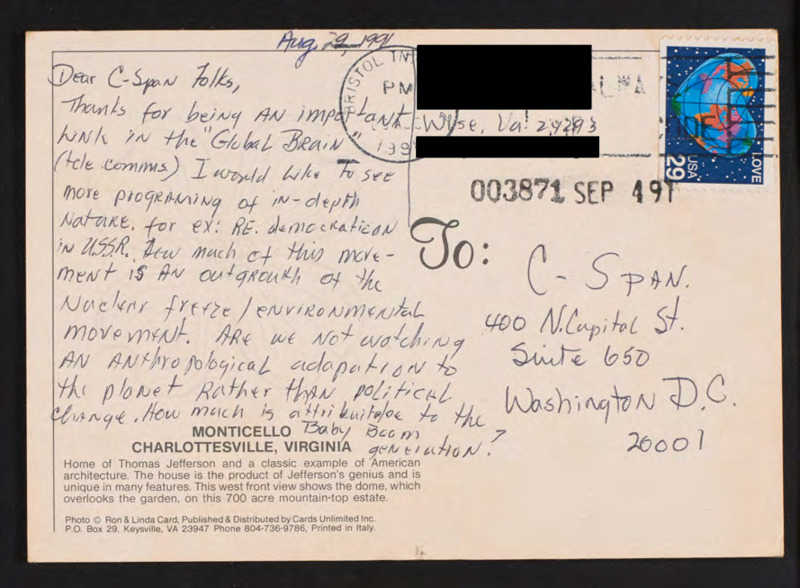 Aug. 29, 1991
Dear C-Span Folks,
Thanks for being AN important
link in the "Global Brain"
(tele comms.) I would like to see
more programing of in-depth
Nature. for ex: RE. democration
in USSR. How much of this move-
ment is AN outgrouth of the
Nuclear freeze/environmental
movement. ARe we Not watching
AN ANthropological adapation to
the planet Rather thAN political
change. How much is attributable to the
Baby Boom
generation?
MONTICELLO
CHARLOTTESVILLE, VIRGINIA
Home of Thomas Jefferson and a classic example of American
architecture. The house is the product of Jefferson's genius and is
unique in many features. This west front view shows the dome, which
overlooks the garden, on this 700 acre mountain-top estate.
Photo © Ron & Linda Card, Published & Distributed by Cards Unlimited Inc.
P.O. Box 29, Keysville, VA 23947 Phone 804-736-9786, Printed in Italy.
BRISTOL TN
PM
199
Wise, Va. 24293
LOVE
USA
29
003871 SEP 491
To:
C-SPAN.
400 N. Capital St.
Suite 650
Washington D.C.
20001